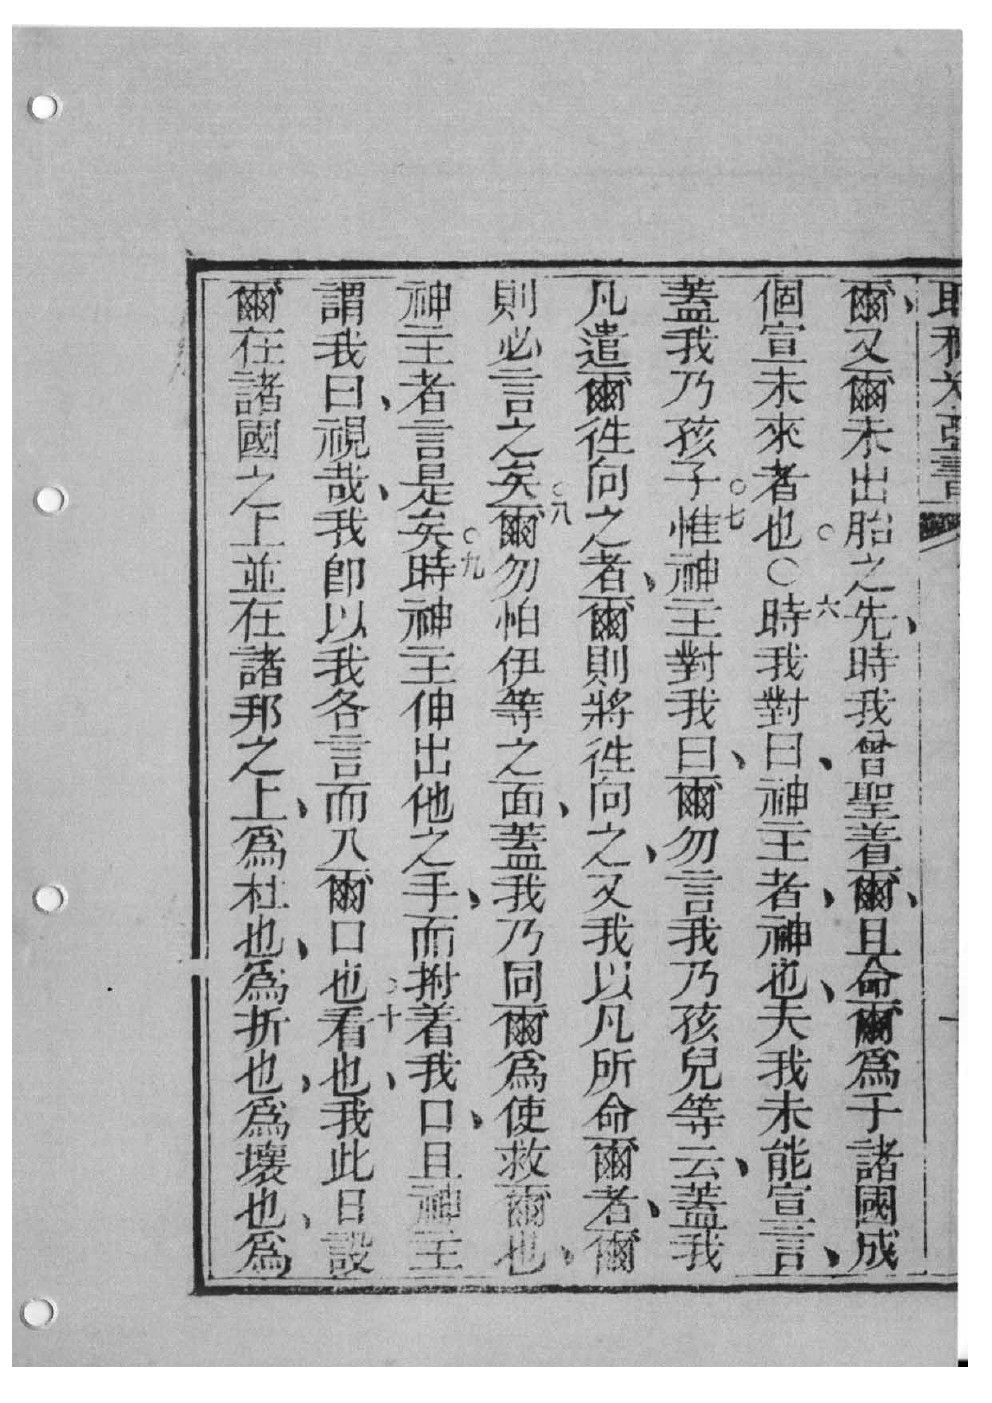 耶利米亞書
爾、又爾未出胎之先、時我曾聖着爾、且命爾爲于諸國成
個宣未來者也〇六時我對曰、神主者、神也、夫我未能宣言、
蓋我乃孩子〇七惟神主對我曰、爾勿言我乃孩兒等云、蓋我
凡遣爾徃向之者、爾則將徃向之、又我以凡所命爾者、爾
則必言之矣〇八爾勿怕伊等之面、蓋我乃同爾爲使救爾也、
神主者言是矣〇九時神主伸出他之手、而拊着我口、且神主
謂我曰、視哉、我卽以我各言而入爾口也〇十看也、我此日設
爾在諸國之上並在諸邦之上、爲杜也、爲折也、爲壞也、爲